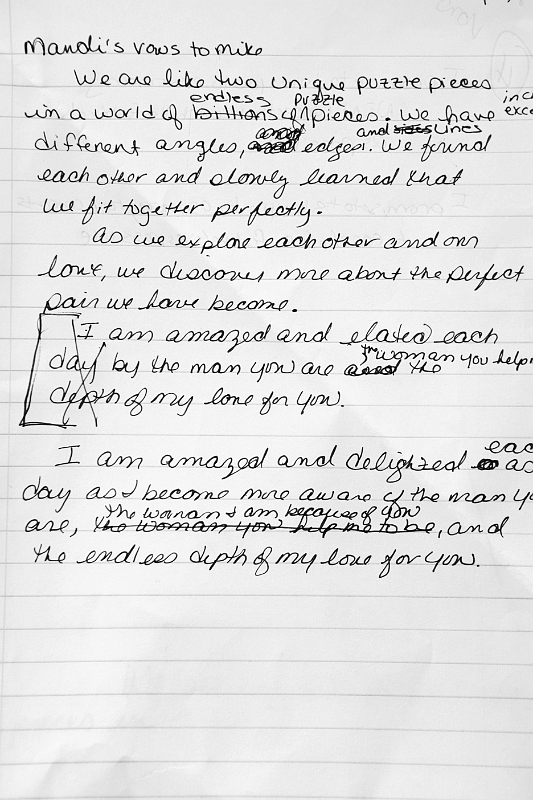 Mandi's vows to mike
We are like two unique puzzle pieces
endless puzzle
in a world of billions of pieces. We have
different angles, edges. and sides lines We found
each other and slowly learned that
we fit together perfectly.
As we explore each other and our
love, we discover more about the perfect
pair we have become.
I am amazed and elated each
day by the man you are and the
the woman you help
depth of my love for you.
each
I am amazed and delighted as
day as I become more aware of the man
the woman I am because of you
are, the woman you help me to be, and
the endless depth of my love for you.